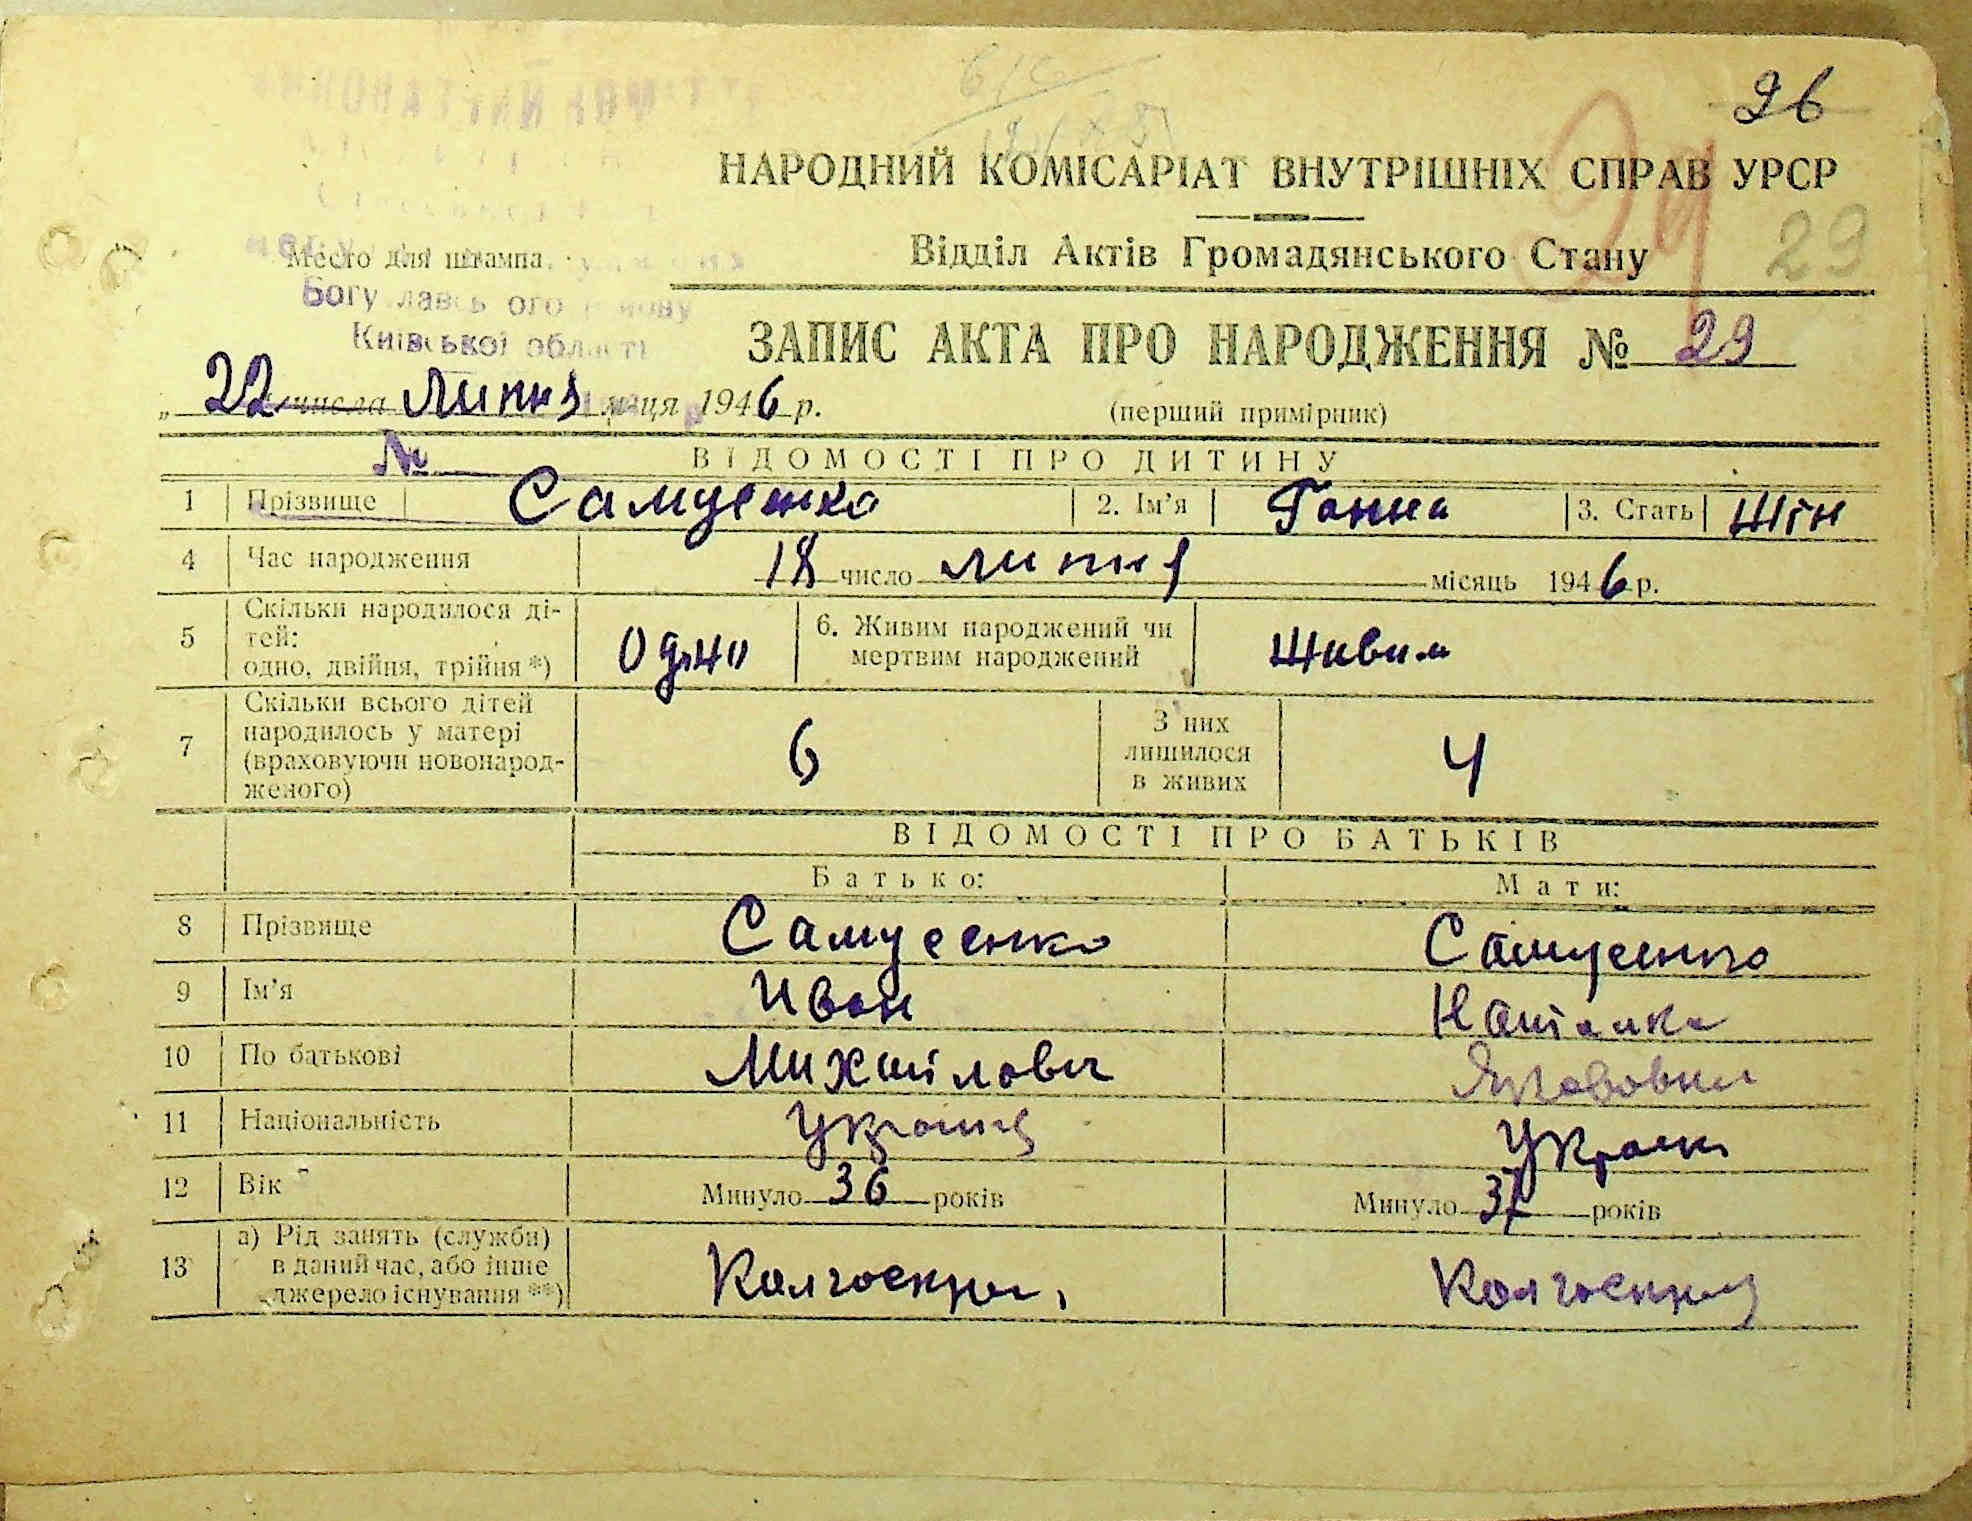 26
НАРОДНИЙ КОМІСАРІАТ ВНУТРІШНІХ СПРАВ УРСР
Відділ Актів Громадянського Стану
29
29
Место для штампа
Київської області
ЗАПИС АКТА ПРО НАРОДЖЕННЯ № 29
„ 22 числа Липня м-ця 1946 р.
(перший примірник)
№
ВІДОМОСТІ ПРО ДИТИНУ
1 Прізвище Самусенко 2. Ім’я Ганна 3. Стать Жін
4 Час народження 18 число липня місяць 1946 р.
5 Скільки народилося ді-
тей:
одно, двійня, трійня *) Одно 6. Живим народжений чи
мертвим народжений Живим
7 Скільки всього дітей
народилось у матері
(враховуючи новонарод-
женого) 6 З них
лишилося
в живих 4
ВІДОМОСТІ ПРО БАТЬКІВ
Батько: Мати:
8 Прізвище Самусенко Самусенко
9 Ім’я Иван Наталка
10 По батькові Михайлович Якововна
11 Національність
12 Вік Минуло 36 років Минуло 37 років
13 а) Рід занять (служби)
в даний час, або інше
джерело існування **)